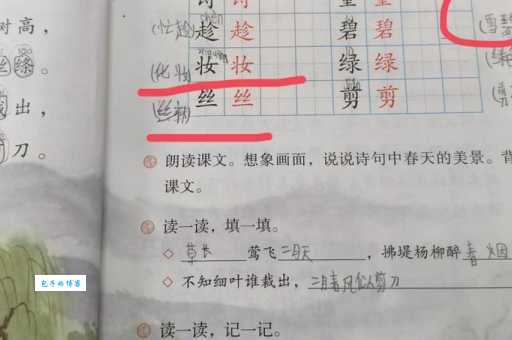 对高，
诗 诗 童 童
(忙趁) 趁 趁 碧 碧
丝绦。
(化妆) 妆 妆 绿 绿
裁出，
丝 丝 剪 剪
刀。
朗读课文。想象画面，说说诗句中春天的美景。背
课文。
读一读，填一填。
◇ 草长 莺飞 二月天，拂堤杨柳醉春烟
◇ 不知细叶谁裁出，二月春风似剪刀
包子的博客
读一读，记一记。